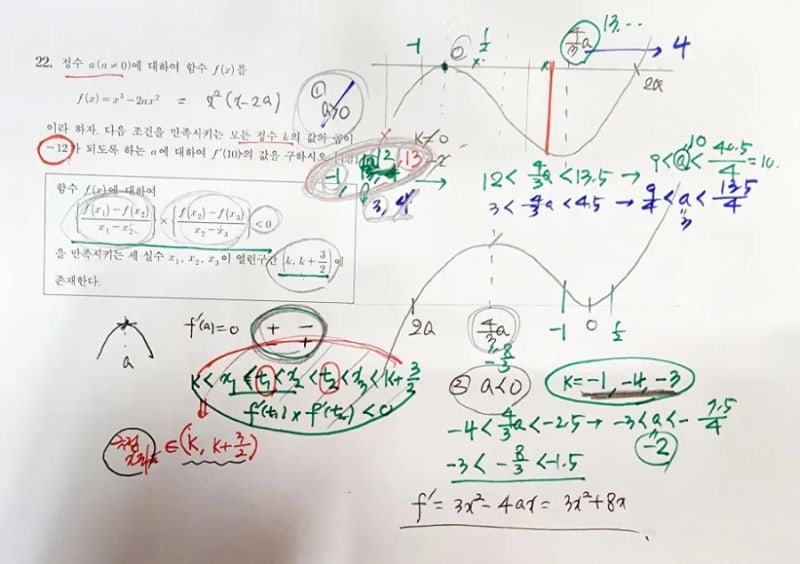 22. 정수 a(a≠0)에 대하여 함수 f(x)를
f(x)=x³-2ax² = x²(x-2a)
이라 하자. 다음 조건을 만족시키는 모든 정수 k의 값의 곱이
-12가 되도록 하는 a에 대하여 f′(10)의 값을 구하시오.
함수 f(x)에 대하여
{f(x₁)-f(x₂) / x₁-x₂} × {f(x₂)-f(x₃) / x₂-x₃} < 0
을 만족시키는 세 실수 x₁, x₂, x₃이 열린구간 (k, k+3/2)에
존재한다.
① a>0
-1 0 1/2 4/3a 13,... 4
2a
k≠0
-1, 12, 13
3, 4
12 < 4/3a < 13.5 → 9 < a < 40.5/4 = 10.
10
3 < 4/3a < 4.5 → 9/4 < a < 13.5/4
3
2a 4/3a -1 0 1/2
-8/3
a
f′(a)=0
+ -
- +
k < x₁ < t₁ < x₂ < t₂ < x₃ < k+3/2
f′(t₁) × f′(t₂) < 0
극점 ∈ (k, k+3/2)
② a<0
k = -1, -4, -3
-4 < 4/3a < -2.5 → -3 < a < -7.5/4
-2
-3 < -8/3 < -1.5
f′ = 3x²-4ax = 3x²+8x